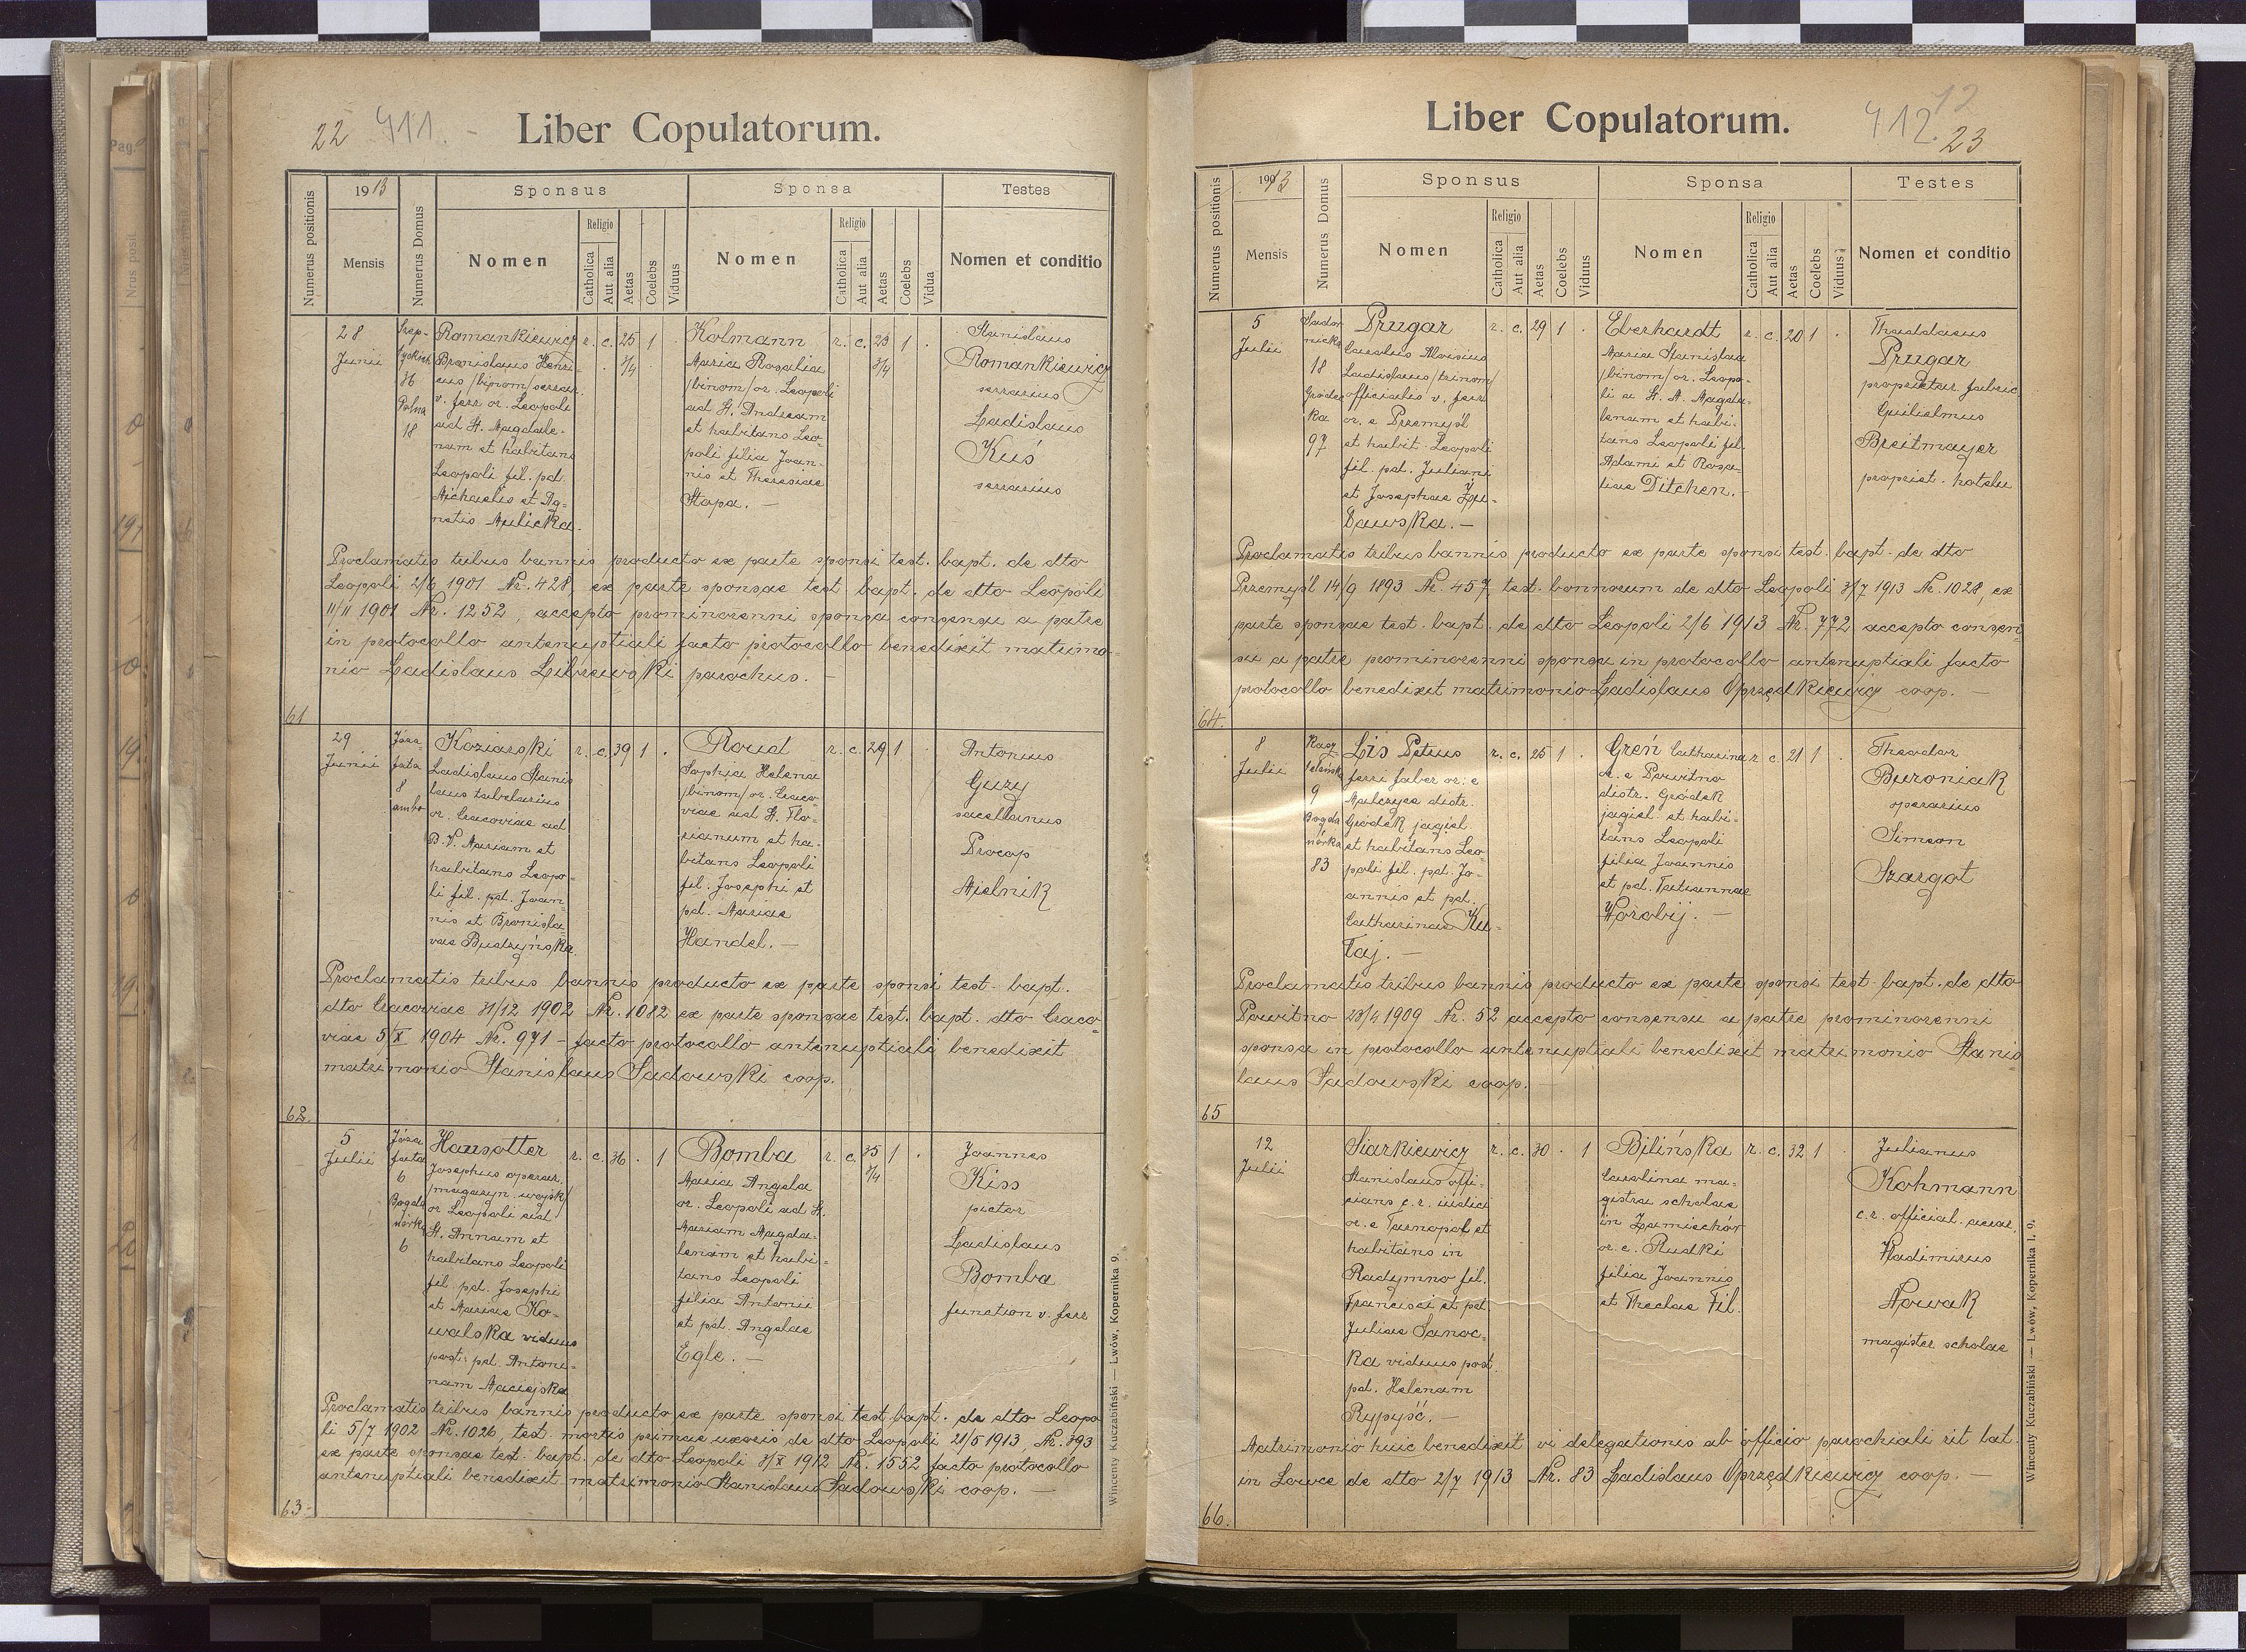 22 411. Liber Copulatorum.
Numerus positionis
1913
Mensis
Numerus Domus
Sponsus
Nomen
Religio
Catholica
Aut alia
Aetas
Coelebs
Viduus
Sponsa
Nomen
Religio
Catholica
Aut alia
Aetas
Coelebs
Vidua
Testes
Nomen et conditio
61
28
Junii
36
18
Romankiewicz
Bronislaus Henri-
cus /binom/ serrar.
v. ferr or. Leopoli
ad St. Magdale-
nam et habitans
Leopoli fil. pd.
Michaelis et Ag-
netis Mulicka.
r. c. 25 3/4 1 .
Kolmann
Maria Rosalia
/binom/ or. Leopoli
ad St. Andream
et habitans Leo-
poli filia Joan-
nis et Theresiae
Stopa. —
r. c. 23 3/4 1 .
Stanislaus
Romankiewicz
serrarius
Ladislaus
Kuś
serrarius
Proclamatis tribus bannis producto ex parte sponsi test. bapt. de dto
Leopoli 2/6 1901 Nr. 428, ex parte sponsae test bapt. de dto Leopoli
11/II 1901 Nr. 1252, accepto prominorenni sponsa consensu a patre
in protocollo antenuptiali facto protocollo benedixit matrimo-
nio Ladislaus Librewski parochus. —
62.
29
Junii
Józa-
fata
8
ambo
Koziarski
Ladislaus Stanis
laus tabelarius
or. Cracoviae ad
B.V. Mariam et
habitans Leopo-
li fil. pd. Joan-
nis et Bronisla-
vae Budzyńska.
r. c. 39 1 .
Roud
Sophia Helena
/binom/ or. Craco-
viae ad St. Flo-
rianum et ha-
bitans Leopoli
fil. Josephi et
pd. Mariae
Handel. —
r. c. 29 1 .
Antonius
Guzy
sacellanus
Procop
Mielnik
Proclamatis tribus bannis producto ex parte sponsi test. bapt.
dto Cracoviae 31/12 1902 Nr. 1082 ex parte sponsae test. bapt. dto Craco-
viae 5/X 1904 Nr. 971 – facto protocollo antenuptiali benedixit
matrimonio Stanislaus Sadowski coop.
63
5
Julii
Józa
fata
6
Bogda
nówka
6
Hausotter
Josephus operar.
/magazyn. wojsk/
or. Leopoli ad
St. Annam et
habitans Leopoli
fil. pd. Josephi
et Mariae Ko-
walska viduus
post. pd. Antoni-
nam Maciejska
r. c. 36 . 1
Bomba
Maria Angela
or. Leopoli ad St.
Mariam Magda-
lenam et habi-
tans Leopoli
filia Antonii
et pd. Angelae
Egle. —
r. c. 35 3/4 1 .
Joannes
Kiss
pictor
Ladislaus
Bomba
function v. ferr
Proclamatis tribus bannis producto ex parte sponsi test. bapt. de dto Leopo
li 5/7 1902 Nr. 1026, test. mortis primae uxoris de dto Leopoli 21/5 1913 Nr. 393
ex parte sponsae test. bapt. de dto Leopoli 3/X 1912 Nr. 1552 facto protocollo
antenuptiali benedixit matrimonio Stanislaus Sadowski coop. —
Wincenty Kuczabiński — Lwów, Kopernika 9.
Liber Copulatorum. 412. 12
23
Numerus positionis
1913
Mensis
Numerus Domus
Sponsus
Nomen
Religio
Catholica
Aut alia
Aetas
Coelebs
Viduus
Sponsa
Nomen
Religio
Catholica
Aut alia
Aetas
Coelebs
Viduus
Testes
Nomen et conditio
64.
5
Julii
Sador
nicka
18
Gródec
ka
97
Prugar
Carolus Aloisius
Ladislaus /trinom/
officialis v. ferr
or. e Przemyśl
et habit. Leopoli
fil. pd. Juliani
et Josephae Żu-
ławska. —
r. c. 29 1 .
Eberhardt
Maria Stanislaa
/binom/ or. Leopo-
li a St. M. Magda-
lenam et habi-
tans Leopoli fil.
Adami et Rosa-
liae Ditchen. —
r. c. 20 1 .
Thaddaeus
Prugar
proprietar. fabric.
Guilielmus
Breitmayer
propriet. hotelu
Proclamatis tribus bannis producto ex parte sponsi test. bapt. de dto
Przemyśl 14/9 1893 Nr. 457, test. bannorum de dto Leopoli 3/7 1913 Nr. 1028, ex
parte sponsae test. bapt. de dto Leopoli 2/6 1913 Nr. 772 accepto consen
su a patre prominorenni sponsa in protocollo antenuptiali facto
protocollo benedixit matrimonio Ladislaus Oprzędkiewicz coop. —
65
8
Julii
9
Bogda
nówka
83
Lis Petrus
ferri faber or. e
Malczyce distr.
Gródek jagiel.
et habitans Leo-
poli fil. pd. Jo-
annis et pd.
Catharinae Ku-
taj. —
r. c. 25 1 .
Greń Catharina
or. e Powitno
distr. Gródek
jagiel. et habi-
tans Leopoli
filia Joannis
et pd. Tatiannae
Worobij. —
r. c. 21 1 .
Theodor
Buroniak
operarius
Simeon
Szargot
Proclamatis tribus bannis producto ex parte sponsi test. bapt. de dto
Powitno 23/4 1909 Nr. 52 accepto consensu a patre prominorenni
sponsa in protocollo antenuptiali benedixit matrimonio Stanis-
laus Sadowski coop. —
66.
12
Julii
Siarkiewicz
Stanislaus offi-
cians c.r. iudicii
or. e Tarnopol et
habitans in
Radymno fil.
Francisci et pd.
Juliae Sanoc-
ka viduus post
pd. Helenam
Rypyść. —
r. c. 30 . 1
Bilińska
Carolina ma-
gistra scholae
in Zamiechów
or. e. Rudki
filia Joannis
et Theclae Fil.
r. c. 32 1 .
Julianus
Kohmann
c.r. official. aerar.
Vladimirus
Nowak
magister scholae
Matrimonio huic benedixit vi delegationis ab officio parochiali rit lat.
in Łowce de dto 2/7 1913 Nr. 83 Ladislaus Oprzędkiewicz coop. —
Wincenty Kuczabiński — Lwów, Kopernika l. 9.